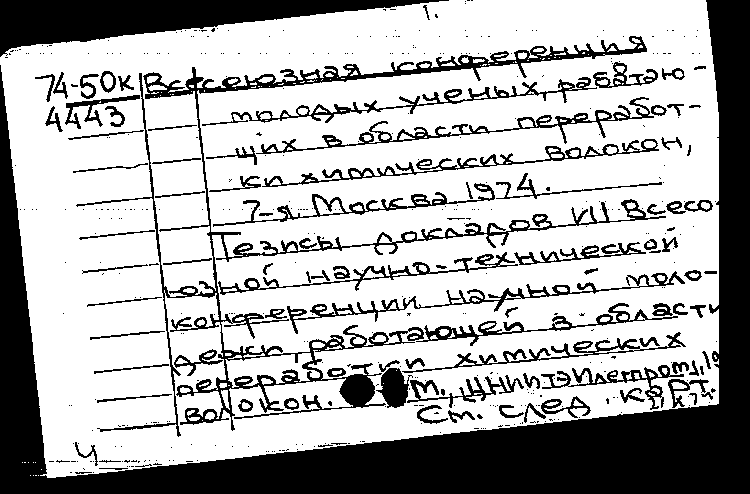 1.
74-50к Всесоюзная конференция
4443 молодых ученых, работаю-
щих в области переработ-
ки химических волокон,
7-я. Москва 1974.
Тезисы докладов VII Всесо-
юзной научно-технической
конференции научной моло-
дежи, работающей в области
переработки химических
волокон. М., ЦНИИТЭИлегпром, 19
См. след. карт.
4